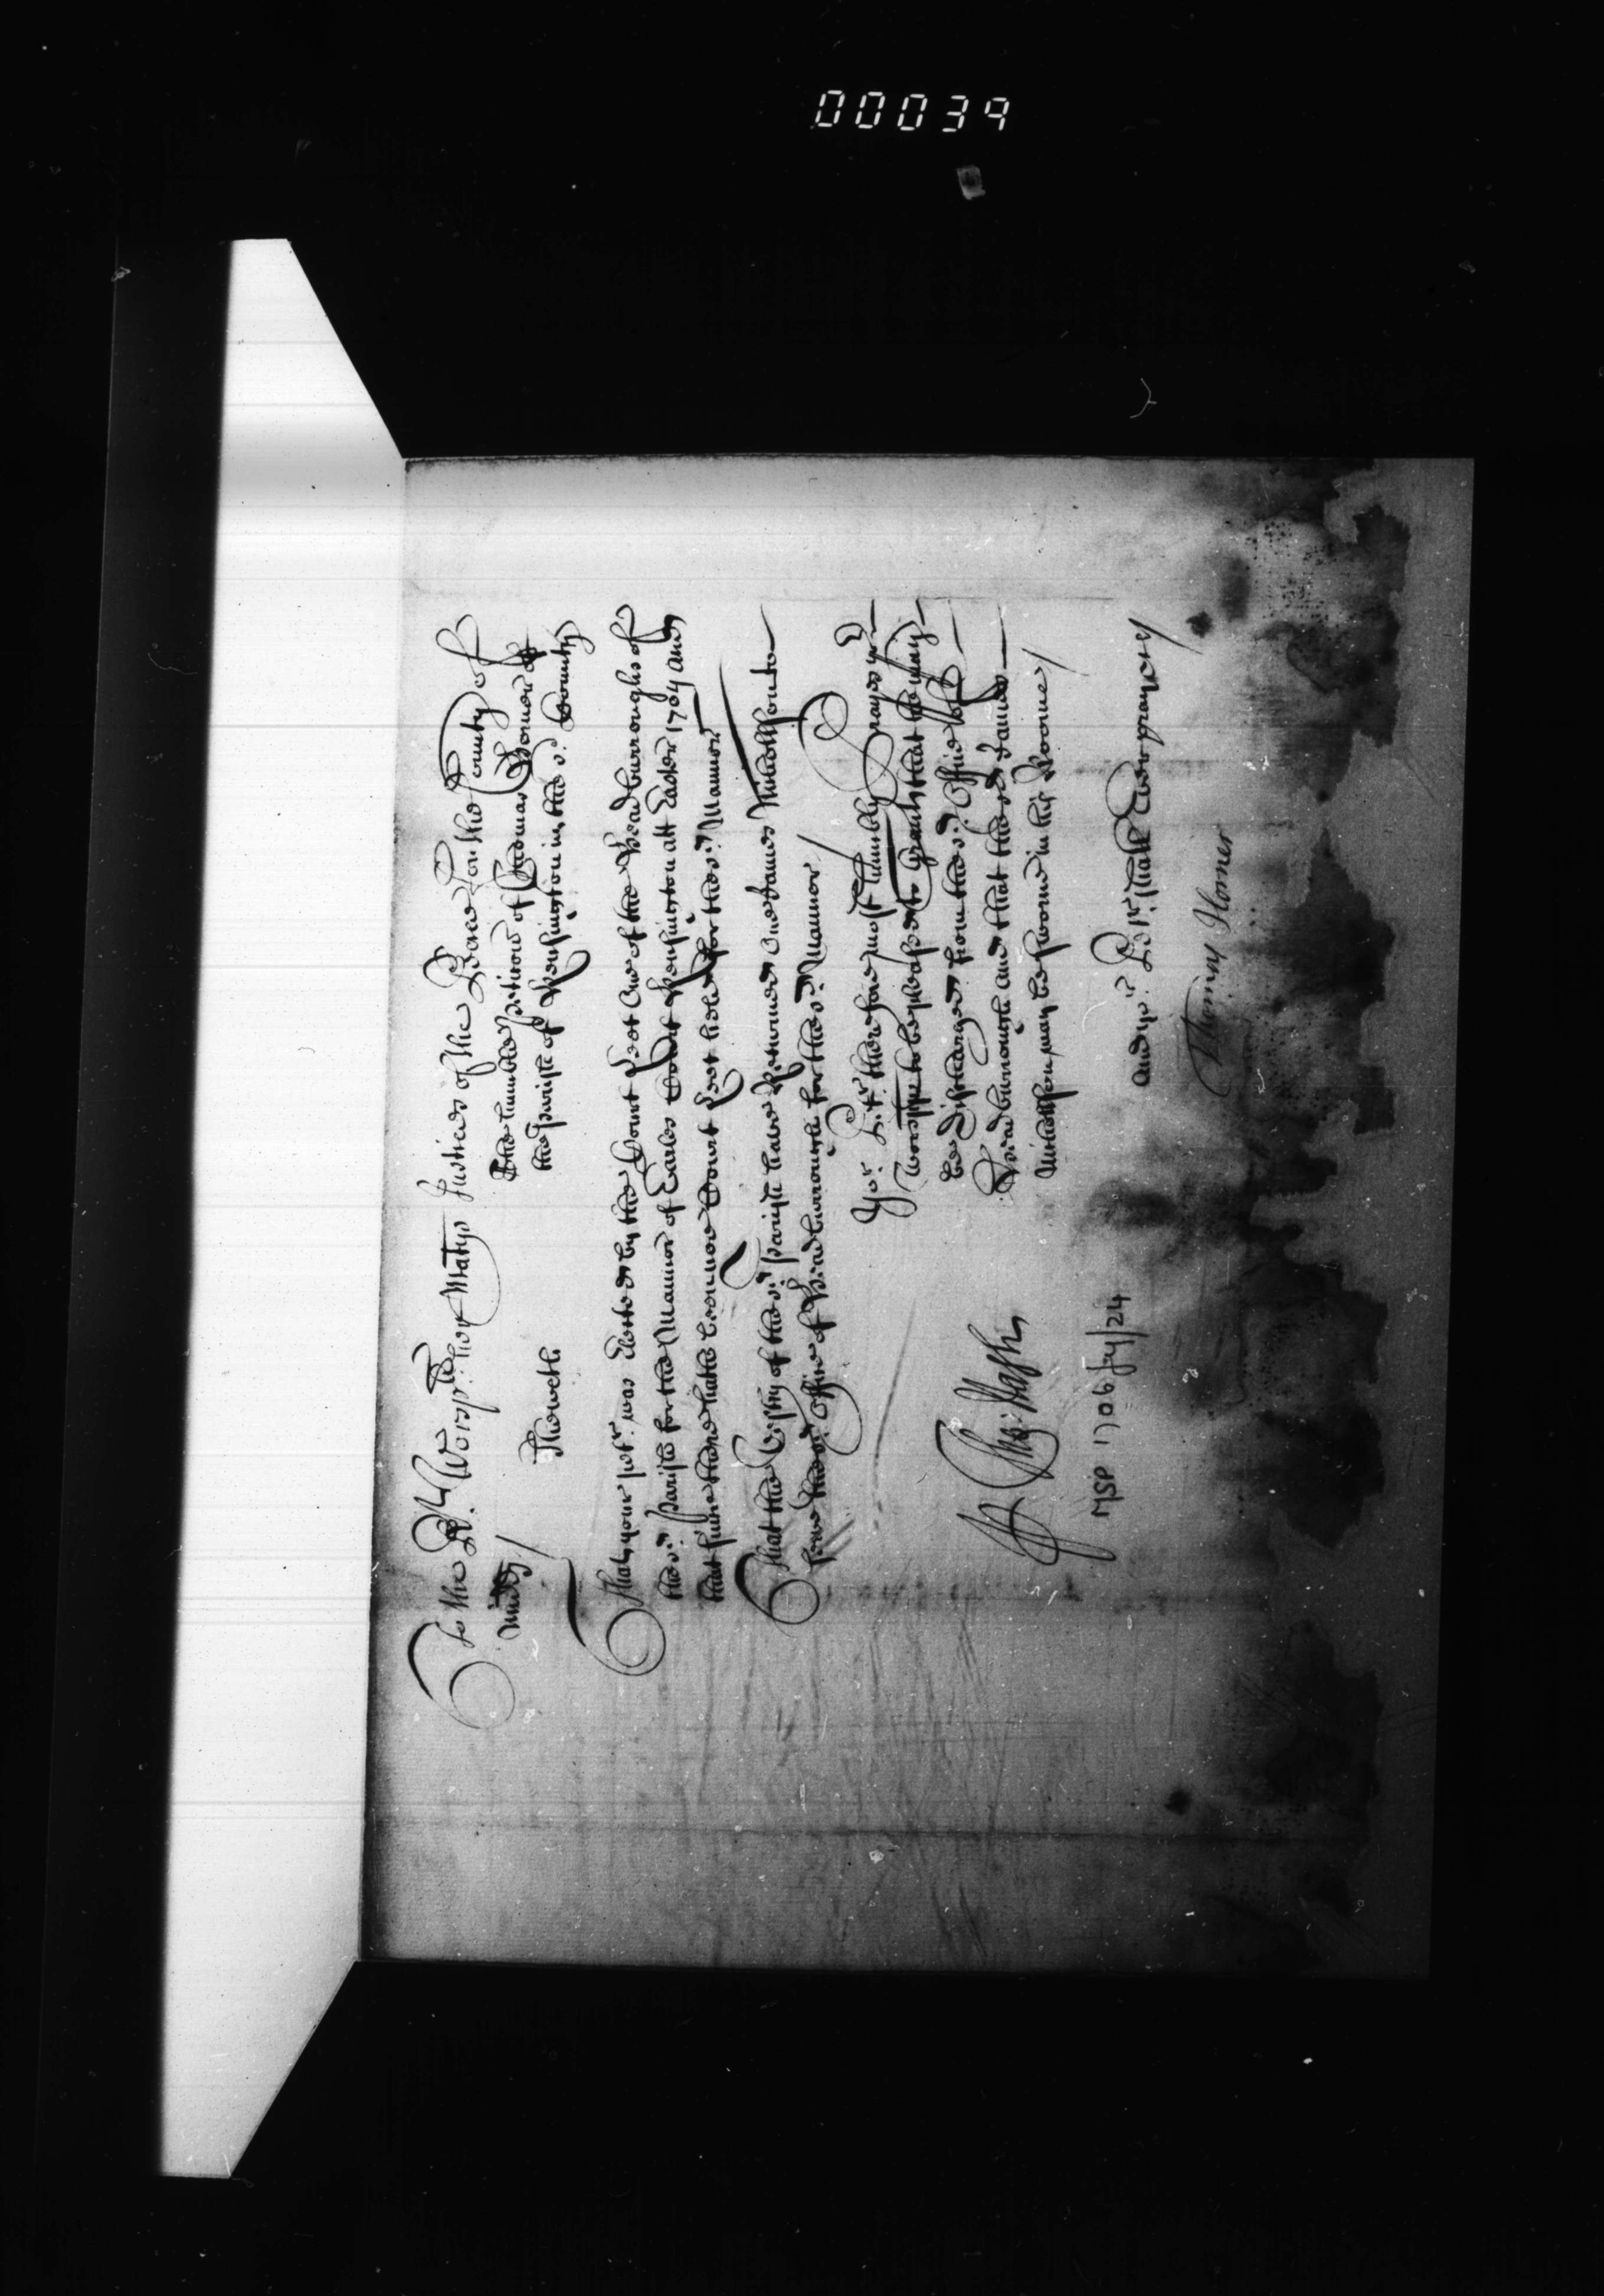 00039
To the Rt. Worspll: her Matys Justices of the Peace For the County of
Middx/
The humble Petition of Thomas Horner of
the Parish of Kensington in the sd: County
Sheweth
That your petr. was Elected by the Court Leet One of the Headburroughs of
the sd: Parish for the Mannor of Earles Court Kensington att Easter 1704 and
that since there hath been noe Court Leet held for the sd: Mannor
That the Vestry of the sd: Parish have Returned One James Nicholson to
serve the sd: Office of Headburrough for the sd: Mannor/
Yor: Petr. therefore most humbly Prayes yor
Worspps to be pleased to Grant that he may
be Discharged from the sd: Office of
Headburrough and that the sd James
Nicholson may be sworne in his Roome/
And yor: Petr: shall Ever pray &c/
Thomas Horner
MSP 1706 Jy/24